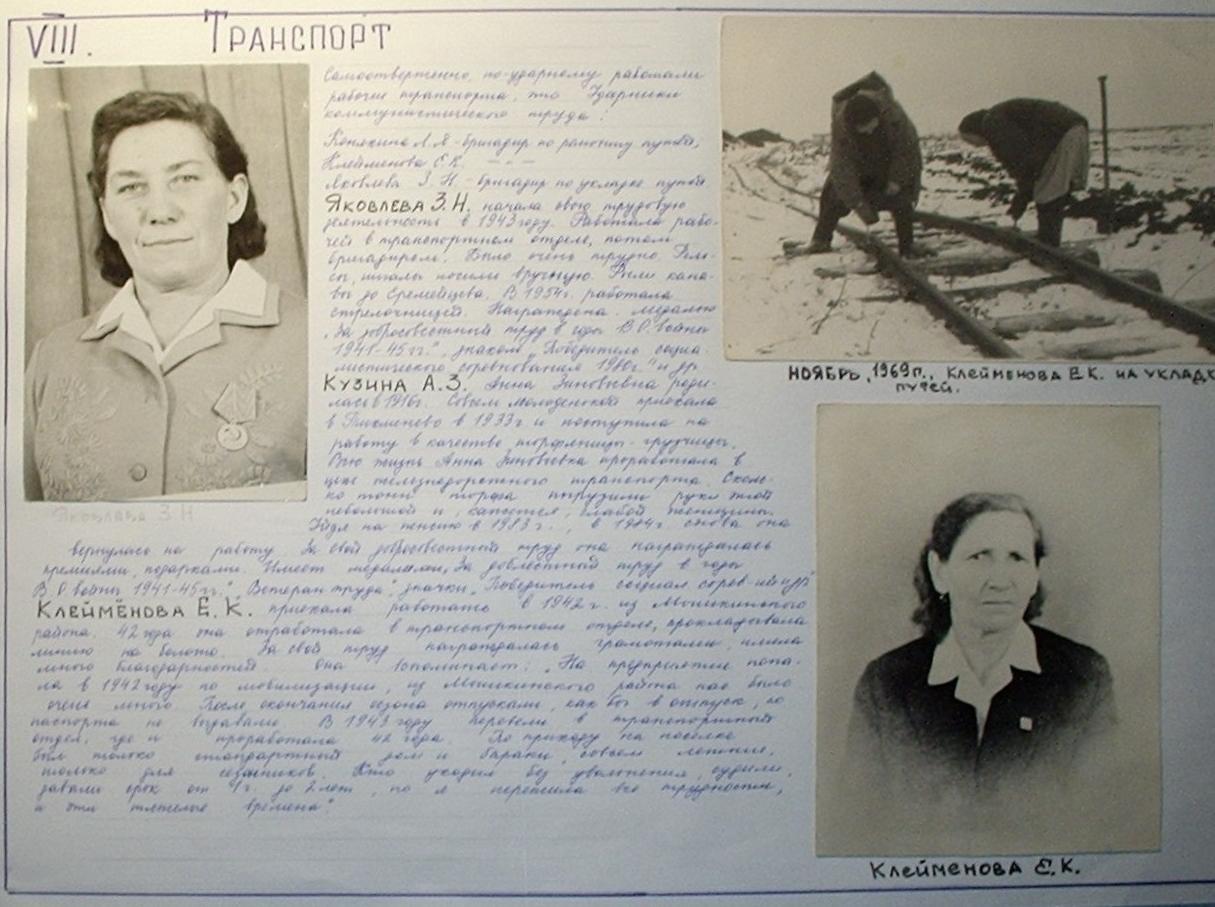 VIII. Транспорт
Самоотверженно, по-ударному работали
рабочие транспорта, это Ударники
коммунистического труда:
Конякина А.Я - бригадир по ремонту путей,
Клейменова Е.К. — " —
Яковлева З.Н. - бригадир по укладке путей
ЯКОВЛЕВА З.Н. начала свою трудовую
деятельность в 1943 году. Работала рабо-
чей в транспортном отделе, потом
бригадиром. Было очень трудно. Рель-
сы, шпалы носили вручную. Рыли кана-
вы до Еремейцева. В 1954г. работала
стрелочницей. Награждена медалью
"За добросовестный труд в годы В.О. войны
1941-45гг.", знаком "Победитель социа-
листического соревнования 1980г." и др.
КУЗИНА А.З. Анна Зиновьевна роди-
лась в 1916г. Совсем молоденькой приехала
в Тихменево в 1933г и поступила на
работу в качестве торфяницы-грузчицы.
Всю жизнь Анна Зиновьевна проработала в
цехе железнодорожного транспорта. Сколь-
ко тонн торфа погрузили руки этой
невольшой и, кажется, слабой женщины.
Уйдя на пенсию в 1983г., в 1984г снова она
вернулась на работу. За свой добросовестный труд она награждалась
премиями, подарками. Имеет медали "За доблестный труд в годы
В.О войны 1941-45гг.", "Ветеран труда", значки "Победитель социал. сорев-ия" и др
КЛЕЙМЁНОВА Е.К. приехала работать в 1942г. из Мышкинского
района. 42 года она отработала в транспортном отделе, прокладывала
линию на болото. За свой труд награждалась грамотами, имела
много благодарностей. Она вспоминает: "На предприятие попа-
ла в 1942 году по мобилизации, из Мышкинского района нас было
очень много. После окончания сезона отпускали, как бы в отпуск, но
паспорта не выдавали. В 1943 году перевели в транспортный
отдел, где и проработала 42 года. По приезду на посёлке
был только стандартный дом и бараки, совсем летние,
только для сезонников. Кто уходил без увольнения, судили,
давали срок от 1г. до 2 лет, но я пережила все трудности,
и эти тяжелые времена."
Яковлева З Н
НОЯБРЬ, 1969г., КЛЕЙМЕНОВА Е.К. НА УКЛАДК
ПУТЕЙ.
КЛЕЙМЕНОВА Е.К.